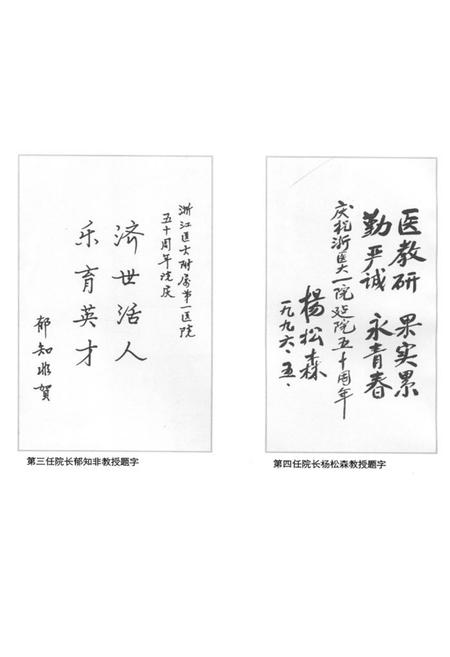 浙江医大附属第一医院
五十周年院庆
济世活人
乐育英才
郁知非贺
第三任院长郁知非教授题字
医教研 果实累
勤严诚 永青春
庆祝浙医大一院建院五十周年
楊松森
一九九六·五·
第四任院长杨松森教授题字